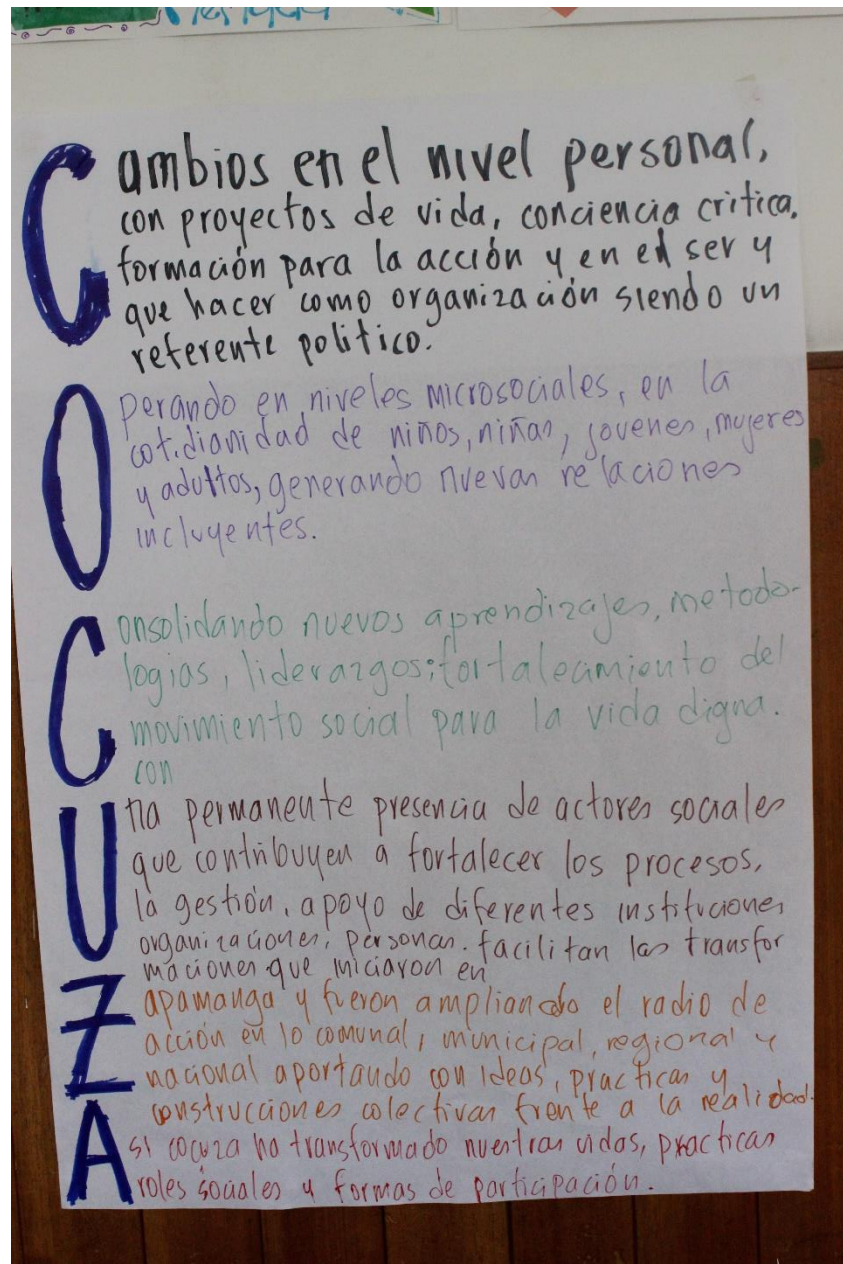 Cambios en el nivel personal,
con proyectos de vida, conciencia critica,
formación para la acción y en el ser y
que hacer como organización siendo un
referente politico.
Operando en niveles microsociales, en la
cotidianidad de niños, niñas, jovenes, mujeres
y adultos, generando nuevas relaciones
incluyentes.
Consolidando nuevos aprendizajes, metodo-
logias, liderazgos; fortalecimiento del
movimiento social para la vida digna.
con
Una permanente presencia de actores sociales
que contribuyen a fortalecer los procesos,
la gestión, apoyo de diferentes instituciones
organizaciones, personas. facilitan las transfor
maciones que iniciaron en
Zapamanga y fueron ampliando el radio de
acción en lo comunal, municipal, regional y
nacional aportando con ideas, practicas y
construcciones colectivas frente a la realidad.
Asi cocuza ha transformado nuestras vidas, practicas
roles sociales y formas de participación.